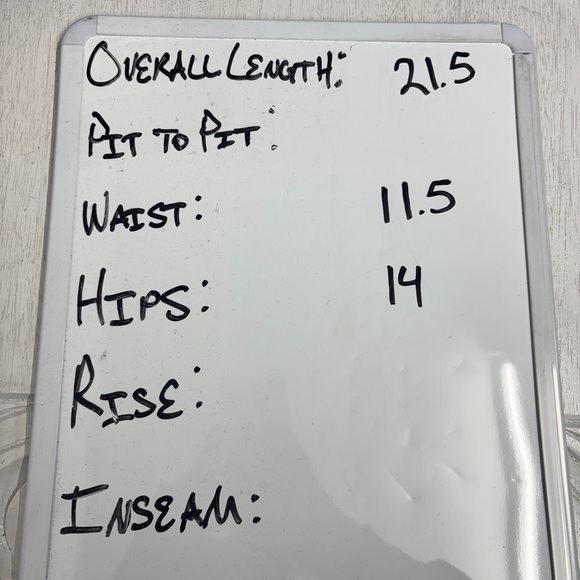 OVERALL LENGTH: 21.5
PIT TO PIT:
WAIST: 11.5
HIPS: 14
RISE:
INSEAM: